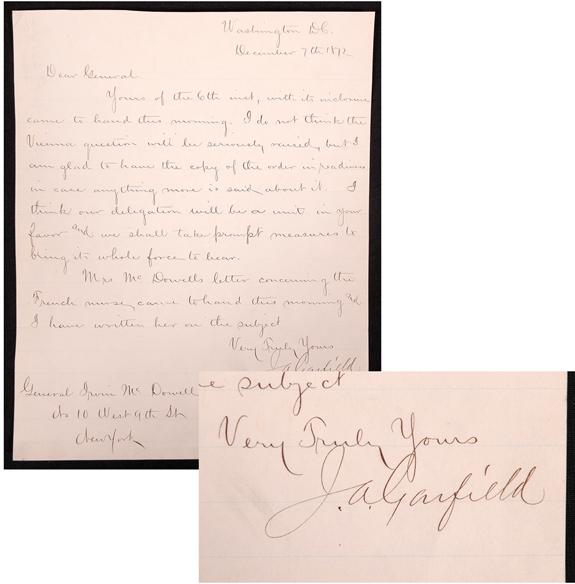 Washington D.C.
December 7th 1872
Dear General
Yours of the 6th inst, with its inclosure
came to hand this morning. I do not think the
Vienna question will be seriously raised, but I
am glad to have the copy of the order in readiness
in case anything more is said about it. I
think our delegation will be a unit in your
favor and we shall take prompt measures to
bring its whole force to bear.
Mrs McDowells letter concerning the
French nurse, came to hand this morning and
I have written her on the subject
Very Truly Yours
J.A. Garfield
General Irvin McDowell
No 10 West 9th St
New York
e subject
Very Truly Yours
J.A. Garfield